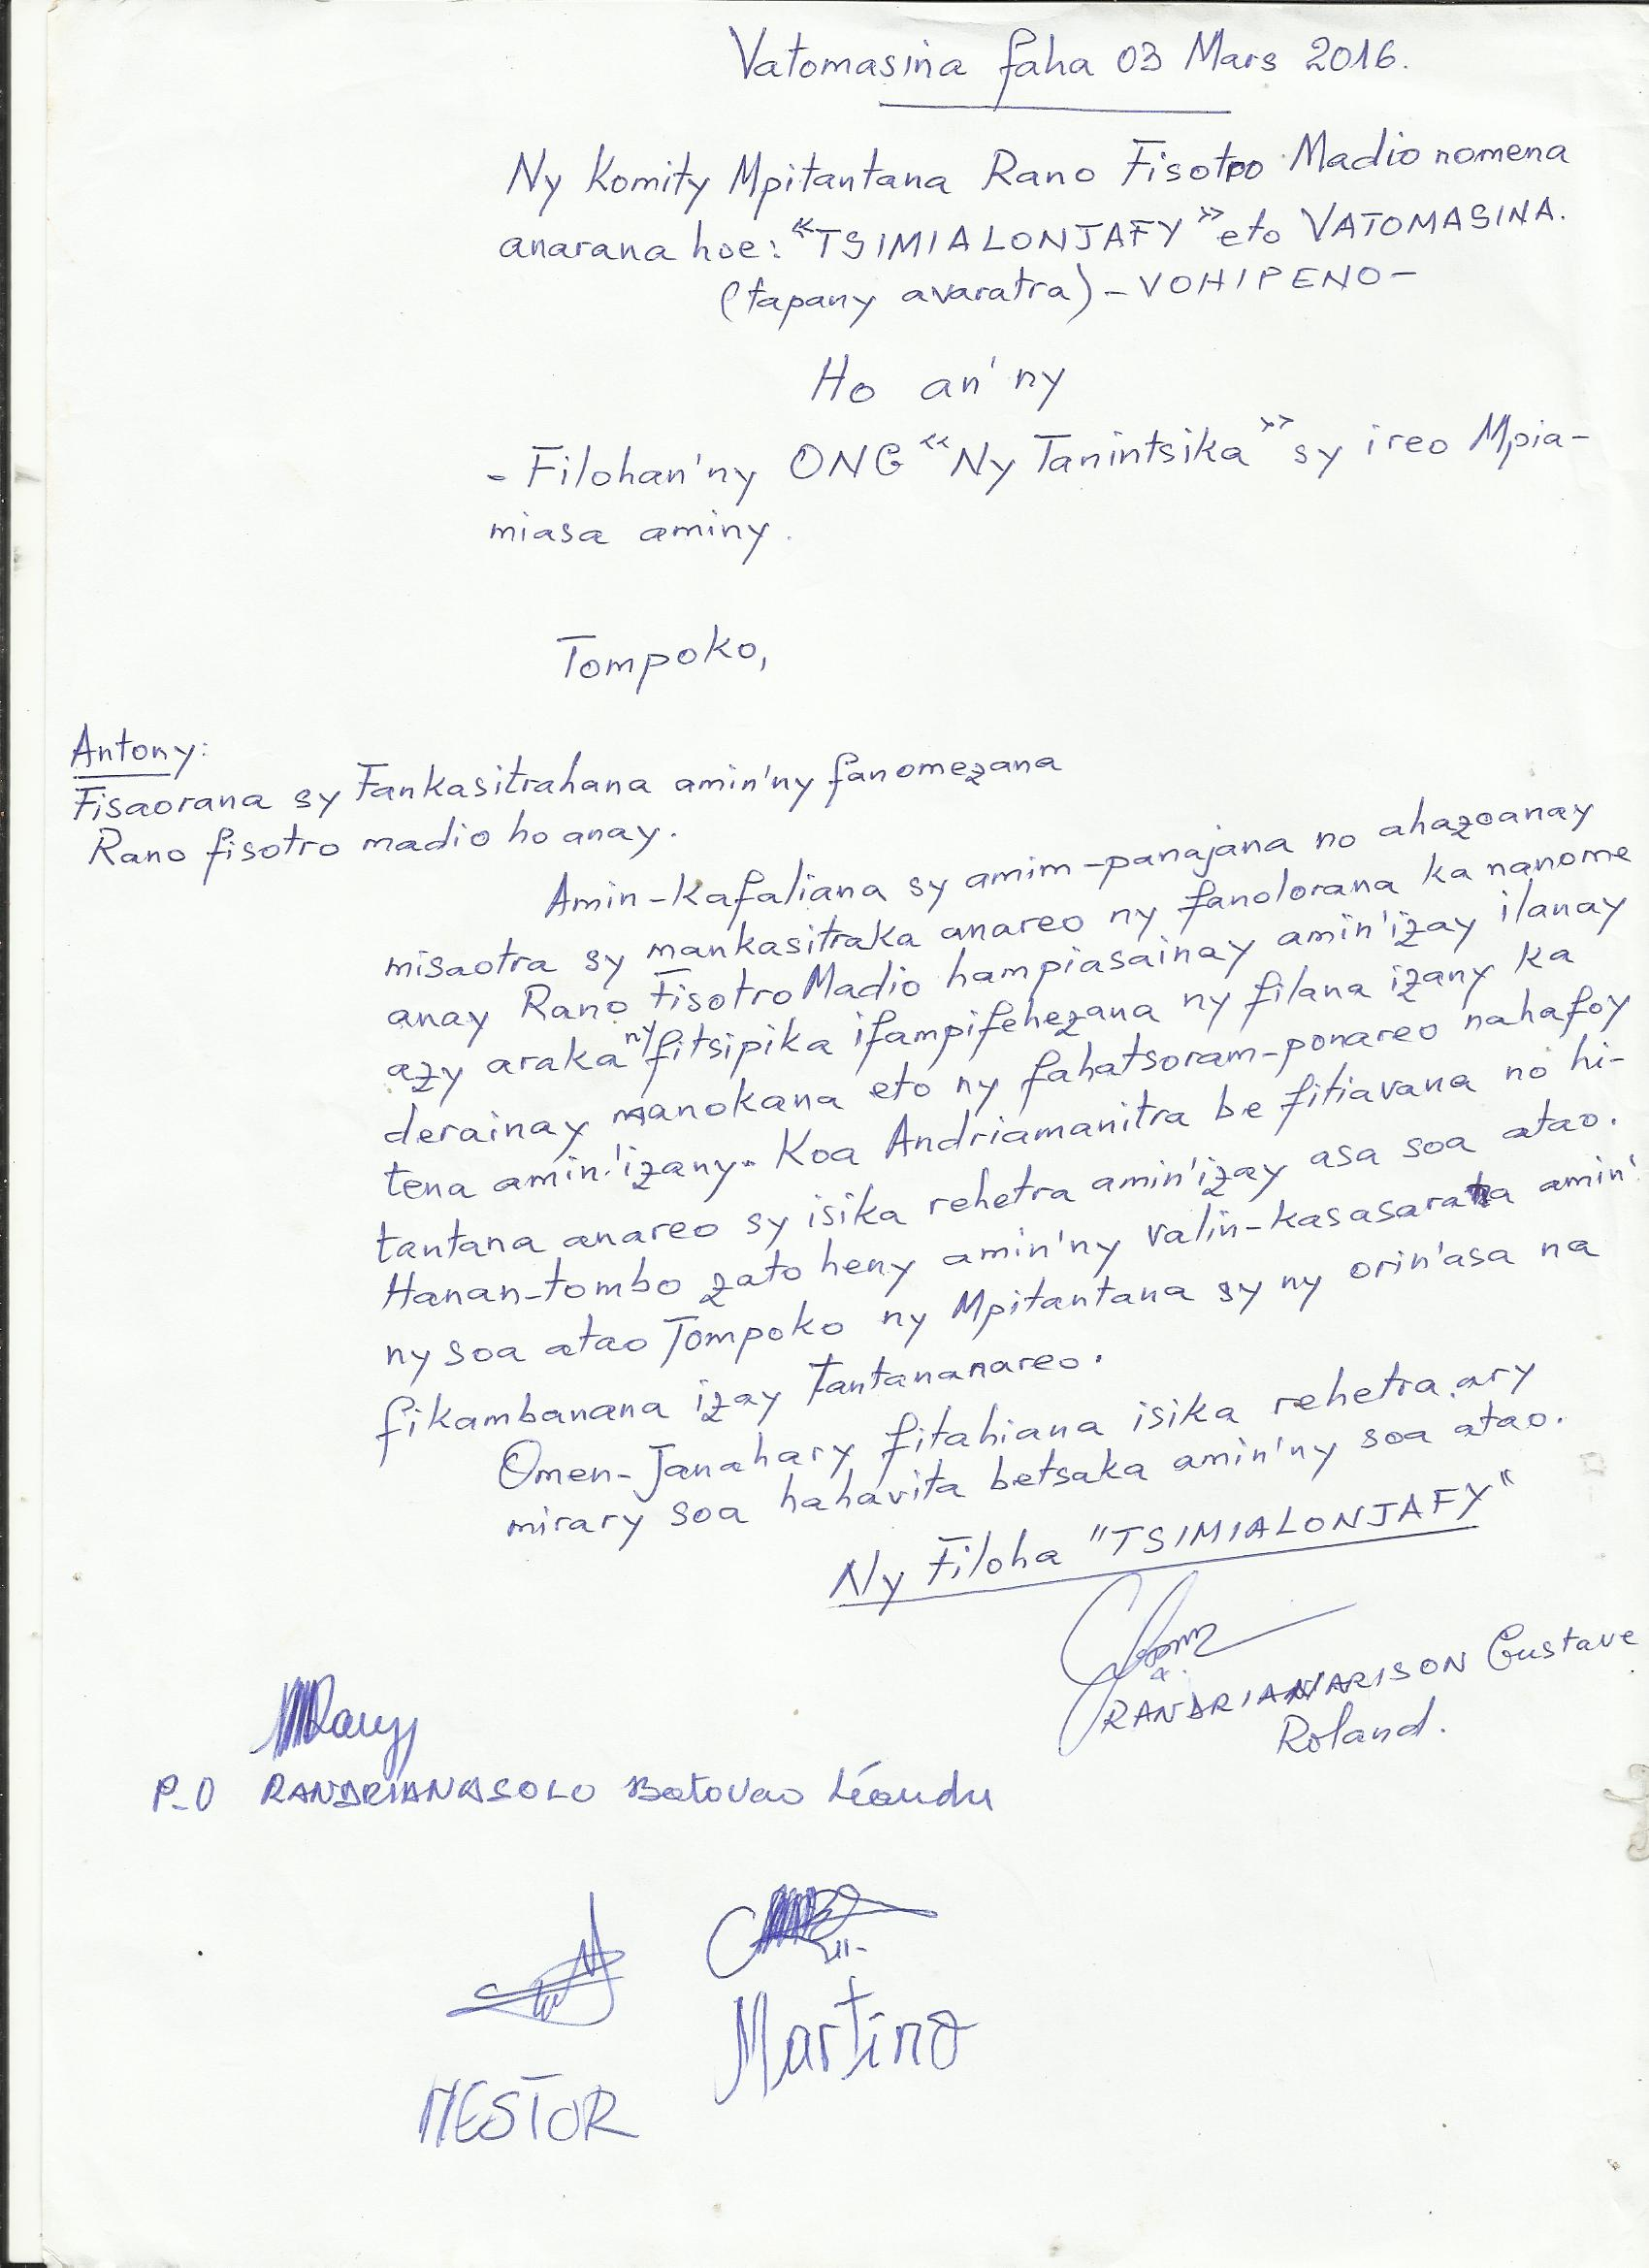 Vatomasina faha 03 Mars 2016.
Ny Komity Mpitantana Rano Fisotro Madio nomena
anarana hoe: "TSIMIALONJAFY" eto VATOMASINA.
(tapany avaratra) - VOHIPENO -
Ho an'ny
- Filohan'ny ONG "Ny Tanintsika" sy ireo Mpia-
miasa aminy.
Tompoko,
Antony:
Fisaorana sy Fankasitrahana amin'ny fanomezana
Rano fisotro madio ho anay.
Amin-kafaliana sy amim-panajana no ahazoanay
misaotra sy mankasitraka anareo ny fanolorana ka nanome
anay Rano Fisotro Madio hampiasainay amin'izay ilanay
azy araka ny fitsipika ifampifehezana ny filana izany ka
derainay manokana eto ny fahatsoram-ponareo nahafoy
tena amin'izany. Koa Andriamanitra be fitiavana no hi-
tantana anareo sy isika rehetra amin'izay asa soa atao.
Hanan-tombo zato heny amin'ny valin-kasasarana amin'
ny soa atao Tompoko ny Mpitantana sy ny orin'asa na
fikambanana izay Tantananareo.
Omen-Janahary fitahiana isika rehetra ary
mirary soa hahavita betsaka amin'ny soa atao.
Ny Filoha "TSIMIALONJAFY"
RANDRIANARISON Gustave
Roland.
P-O RANDRIANASOLO Batovao Léandre
Martino
NESTOR